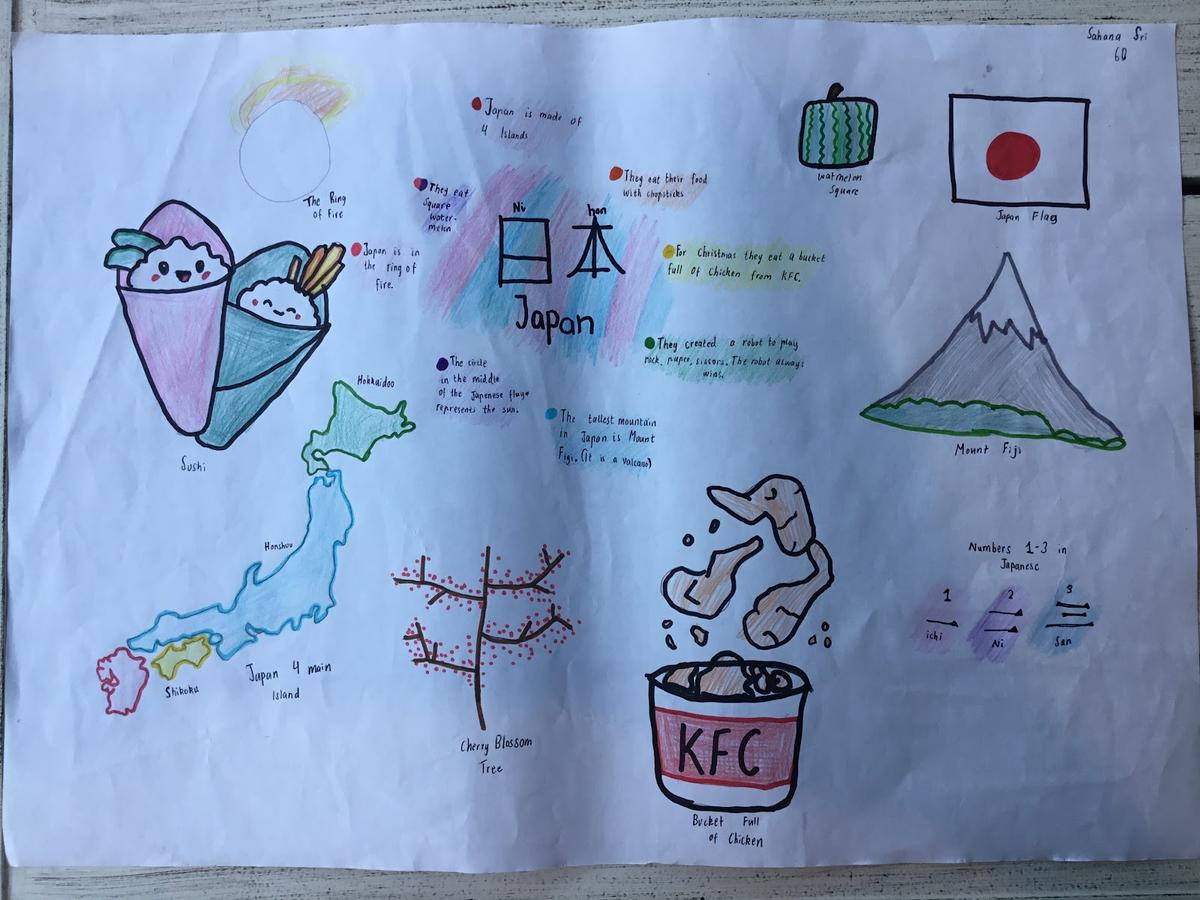 Sahana Sri
6D
Japan is made of
4 Islands
The Ring
of Fire
They eat
Square
water-
melon
They eat their food
with chopsticks
Watmelon
Square
Japan Flag
Ni hon
日本
Japan
Japan is in
the ring of
fire.
For Christmas they eat a bucket
full of Chicken from KFC.
They created a robot to play
rock, paper, sissors. The robot always
wins.
The circle
in the middle
of the Japenese flag
represents the sun.
The tallest mountain
in Japan is Mount
Figi. (It is a valcano)
Sushi
Mount Fiji
Hokkaidoo
Honshuu
Shikoku
Japan 4 main
Island
Cherry Blossom
Tree
KFC
Bucket Full
of Chicken
Numbers 1-3 in
Japanese
1 2 3
一 二 三
ichi Ni San